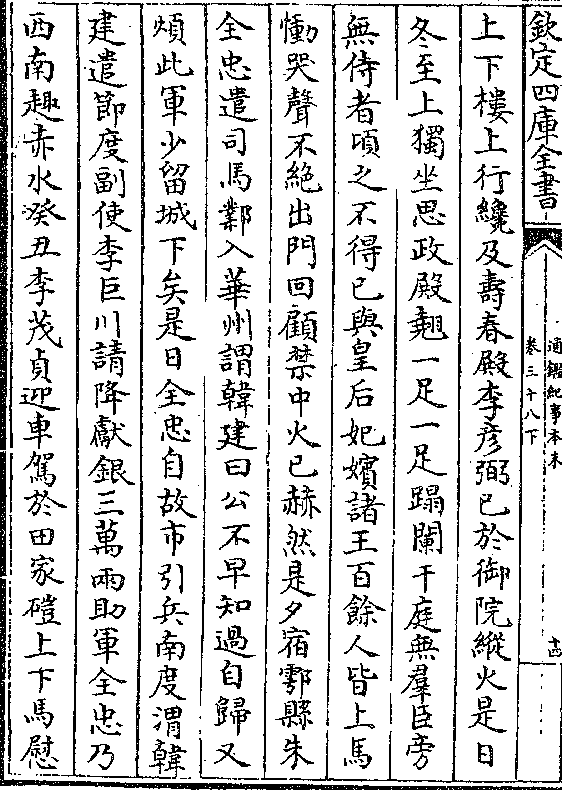 欽定四庫全書
通鑑紀事本末
卷三十八下
十四
上下樓上行纔及壽春殿李彦弼已於御院縱火是日
冬至上獨坐思政殿翹一足一足蹋闌干庭無羣臣旁
無侍者頃之不得已與皇后妃嬪諸王百餘人皆上馬
慟哭聲不絶出門回顧禁中火已赫然是夕宿鄠縣朱
全忠遣司馬鄴入華州謂韓建曰公不早知過自歸又
煩此軍少留城下矣是日全忠自故市引兵南度渭韓
建遣節度副使李巨川請降獻銀三萬兩助軍全忠乃
西南趣赤水癸丑李茂貞迎車駕於田家磑上下馬慰